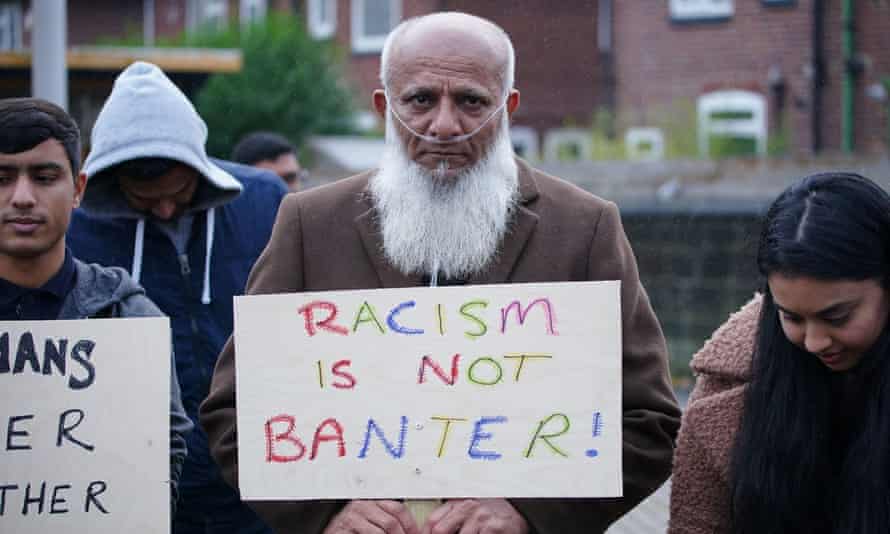 MANS
ER
THER
RACISM
IS NOT
BANTER!